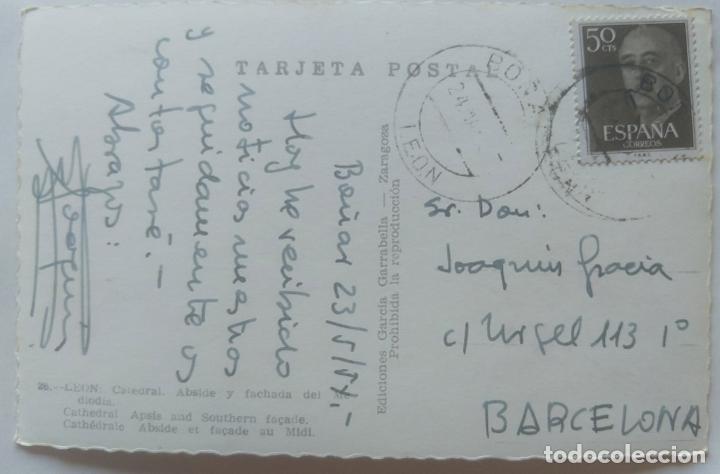 TARJETA POSTAL
Boñar 23/5/57.-
Hoy he recibido
noticias vuestras
y seguidamente os
contestaré.-
Abrazos:
Joaquin
28.--LEON: Catedral. Abside y fachada del Me-
diodia.
Cathedral Apsis and Southern façade.
Cathédrale Abside et façade au Midi.
Ediciones García Garrabella — Zaragoza
Prohibida la reproducción
50 CTS
ESPAÑA
CORREOS
LEON
Sr. Don:
Joaquin Gracia
c/ Urgel 113 1º
BARCELONA
todocoleccion